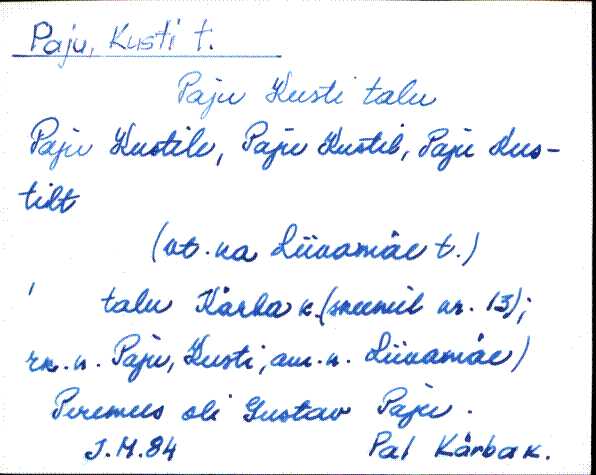 Paju, Kusti t.
Paju Kusti talu
Paju Kustile, Paju Kustil, Paju Kus-
tilt
(vt. ka Liivamäe t.)
talu Kärba k. (skeemil nr. 13);
rk. n. Paju, Kusti, am. n. Liivamäe)
Peremees oli Gustav Paju.
J.M.84 Pal Kärba k.